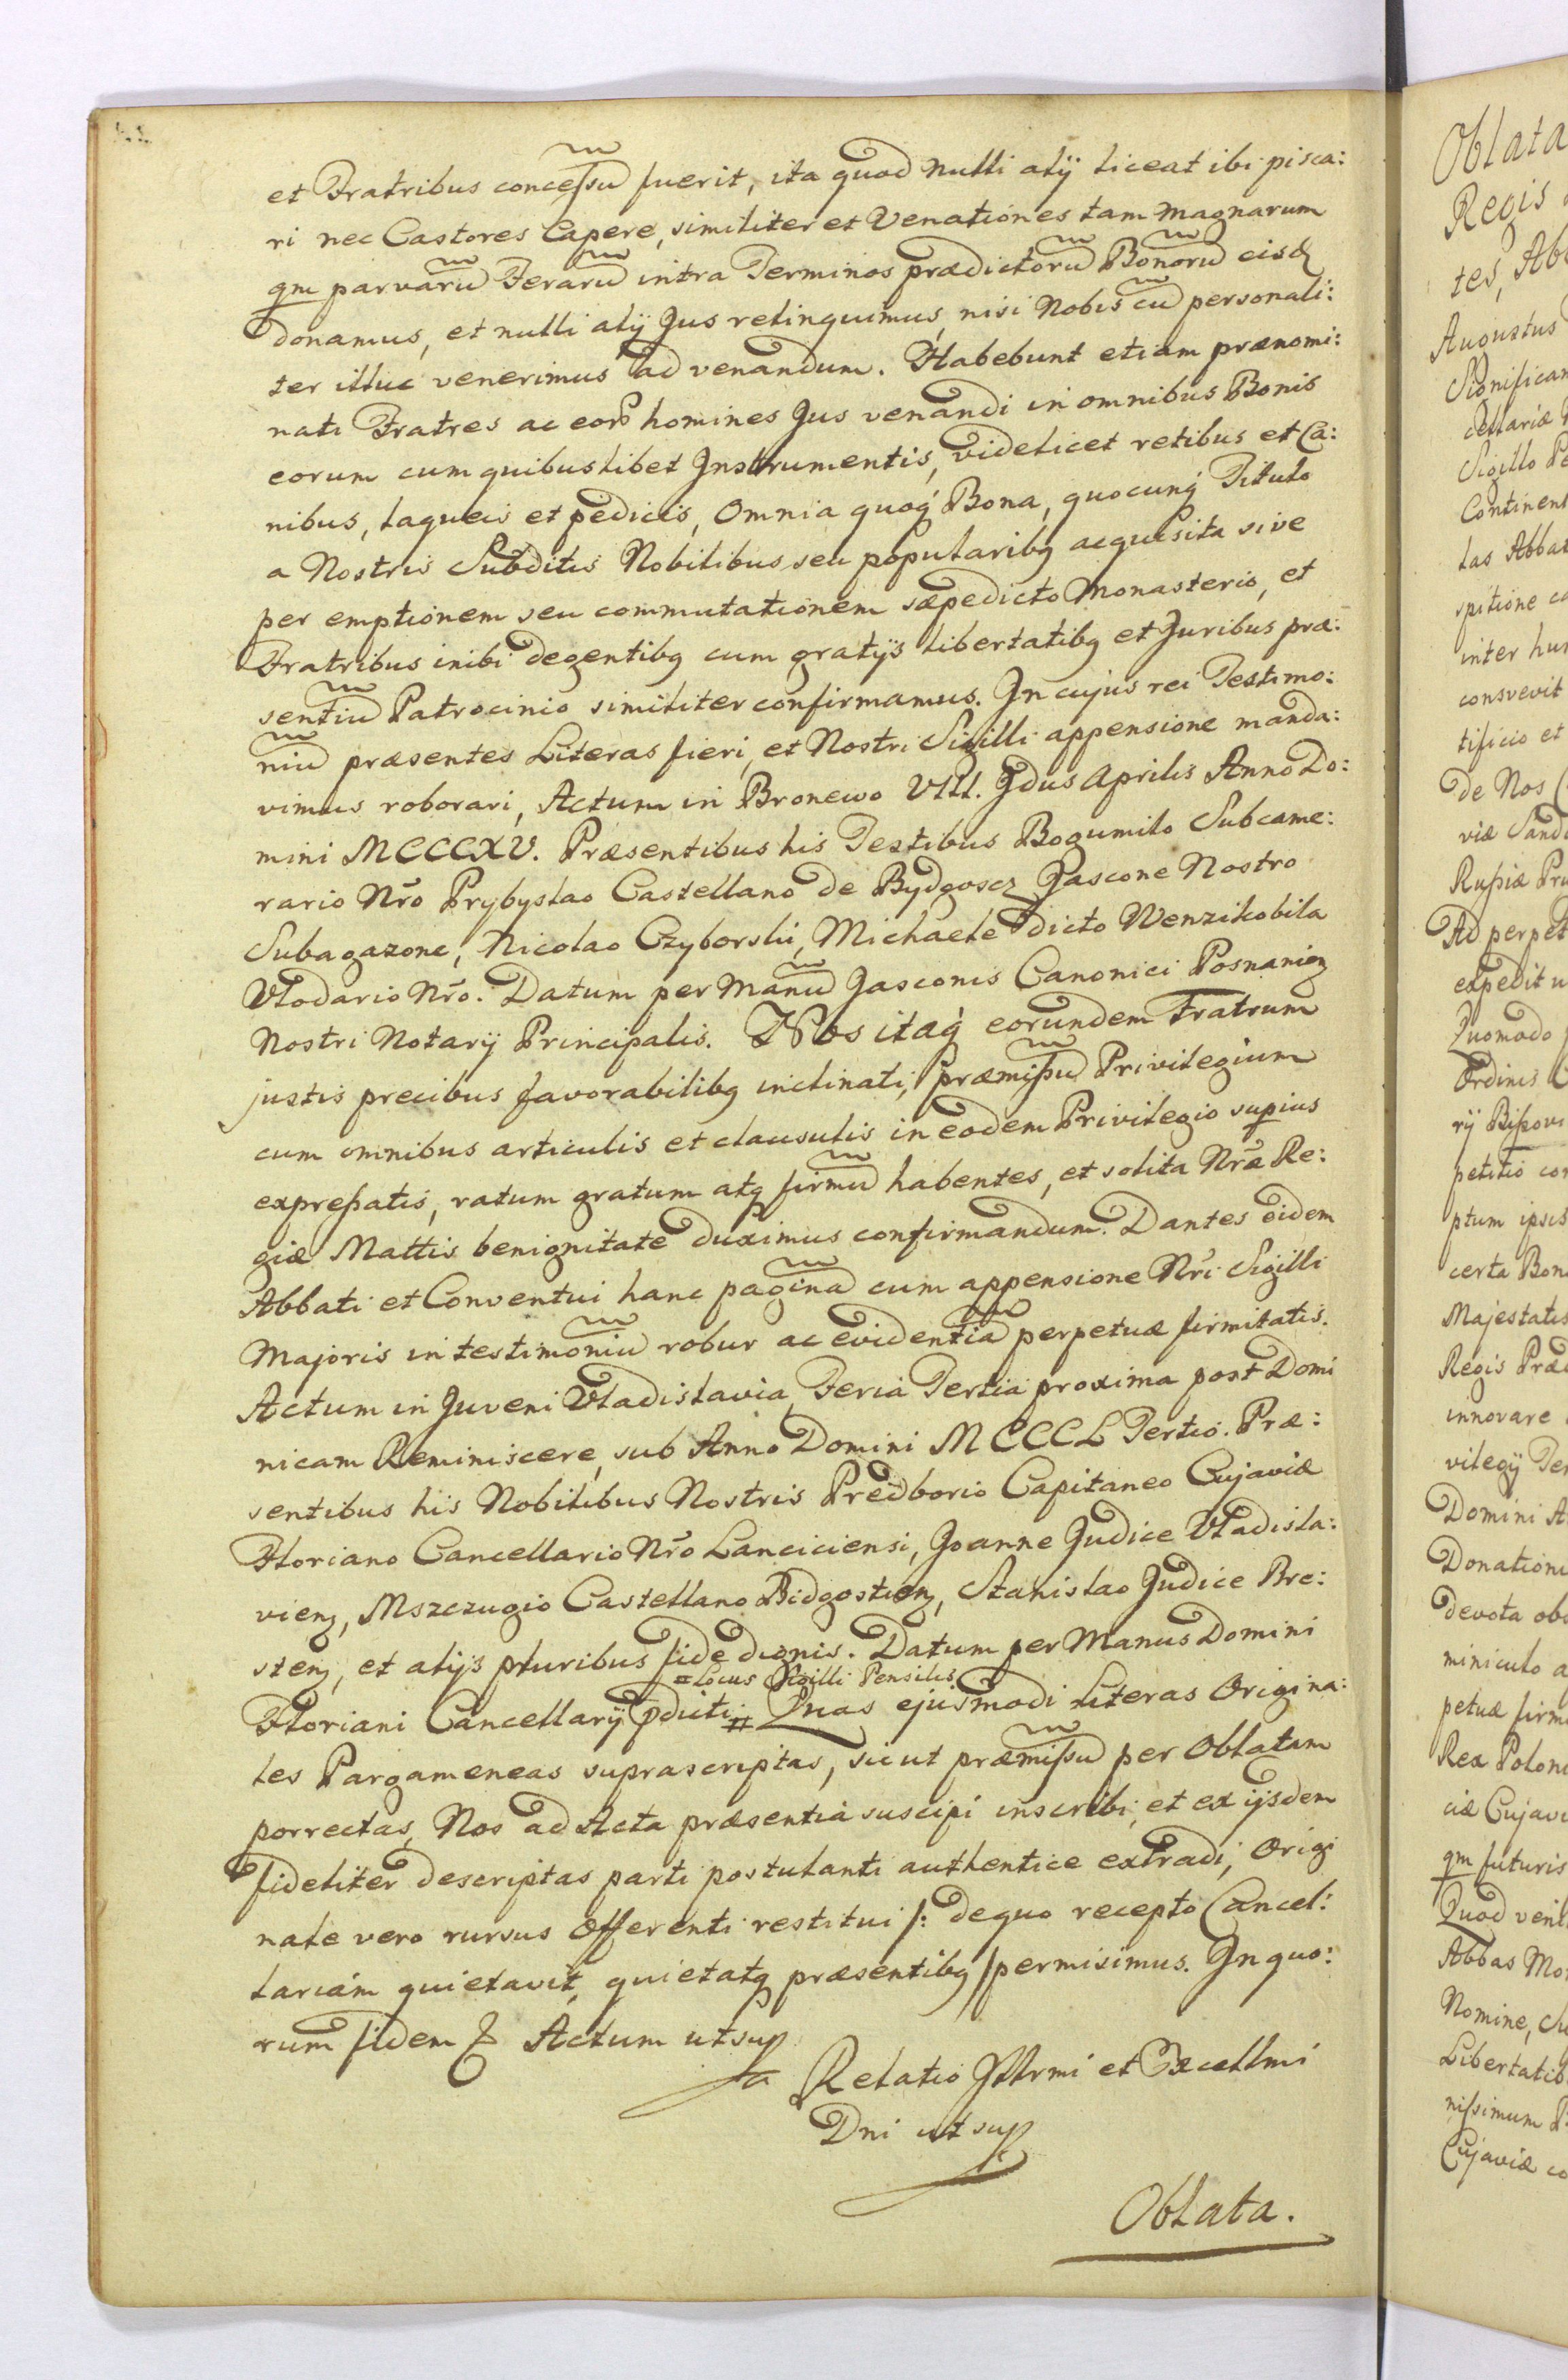 et Fratribus concessu fuerit, ita quod nulli alÿ liceat ibi pisca:
ri nec Castores Capere, similiter et Venationes tam magnarum
qm parvaru Feraru intra Terminos prædictoru Bonoru eisd
donamus, et nulli alÿ Jus relinquimus, nisi Nobis cu personali:
ter illuc venerimus ad venandum. Habebunt etiam prænomi:
nati Fratres ac eoru homines Jus venandi in omnibus Bonis
eorum cum quibuslibet Instrumentis, videlicet retibus et Ca:
nibus, laqueis et pedicis, Omnia quoq Bona, quocunq Titulo
a Nostris Subditis Nobilibus seu popularibq acquisita sive
per emptionem seu commutationem sæpedicto Monasterio, et
Fratribus inibi degentibq cum gratÿs libertatibq et Juribus præ:
sentiu Patrocinio similiter confirmamus. In cujus rei Testimo:
niu præsentes Literas fieri, et Nostri Sigilli appensione manda:
vimus roborari, Actum in Bronewo VIII. Idus Aprilis Anno Do:
mini MCCCXV. Præsentibus his Testibus Bogumilo Subcame:
rario Nro Prybyslao Castellano de Bydgoscz Jascone Nostro
Subagazone, Nicolao Czyborski, Michaele dicto Wenzikobila
Vlodario Nro. Datum per Manu Jasconis Canonici Posnanien
Nostri Notarÿ Principalis. Nos itaq eorundem Fratrum
justis precibus favorabilibq inclinati, præmissu Privilegium
cum omnibus articulis et clausulis in eodem Privilegio supius
expressatis, ratum gratum atq firmu habentes, et solita Nra Re:
giæ Mattis benignitate duximus confirmandum. Dantes eidem
Abbati et Conventui hanc pagina cum appensione Nri Sigilli
Majoris in testimoniu robur ac evidentia perpetuæ firmitatis.
Actum in Juveni Vladislavia Feria Tertia proxima post Domi
nicam Reminiscere, sub Anno Domini MCCCL Tertio. Præ:
sentibus his Nobilibus Nostris Predborio Capitaneo Cujaviæ
Floriano Cancellario Nro Lanciciensi, Joanne Judice Vladisla:
vien, Mszczugio Castellano Bidgostien, Stanislao Judice Bre:
sten, et alÿs pluribus fide dignis. Datum per Manus Domini
= Locus Sigilli Pensilis
Floriani Cancellarÿ pdicti # Quas ejusmodi Literas Origina:
les Pargameneas suprascriptas, sicut præmissu per Oblatam
porrectas, Nos ad Acta præsentia suscipi inscribi, et ex ÿsdem
fideliter descriptas parti postulanti authentice extradi, Origi
nale vero rursus Offerenti restitui /: de quo recepto Cancel:
lariam quietavit, quietatq præsentibq / permisimus. In quo:
rum fidem Actum ut sup
Relatio Illrmi et Excellmi
Dni ut sup
Oblata.
Oblata
Regis
tes, Ab
Augustus
Significam
cellariæ
Sigillo Pe
Continent
las Abbat
spitione co
inter hu
consvevit
tificio et
de Nos
viæ Sand
Russiæ Pru
Ad perpet
expedit u
Quomodo
Ordinis C
rÿ Bissovi
petitio con
ptum ipsis
certa Bon
Majestatis
Regis Præd
innovare
vilegÿ Te
Domini A
Donatione
devota ob
miniculo a
petuæ firm
Rex Poloni
ciæ Cujavi
qm futuris
Quod veni
Abbas Mo
Nomine, Su
Libertatib
nissimum P
Cujaviæ co